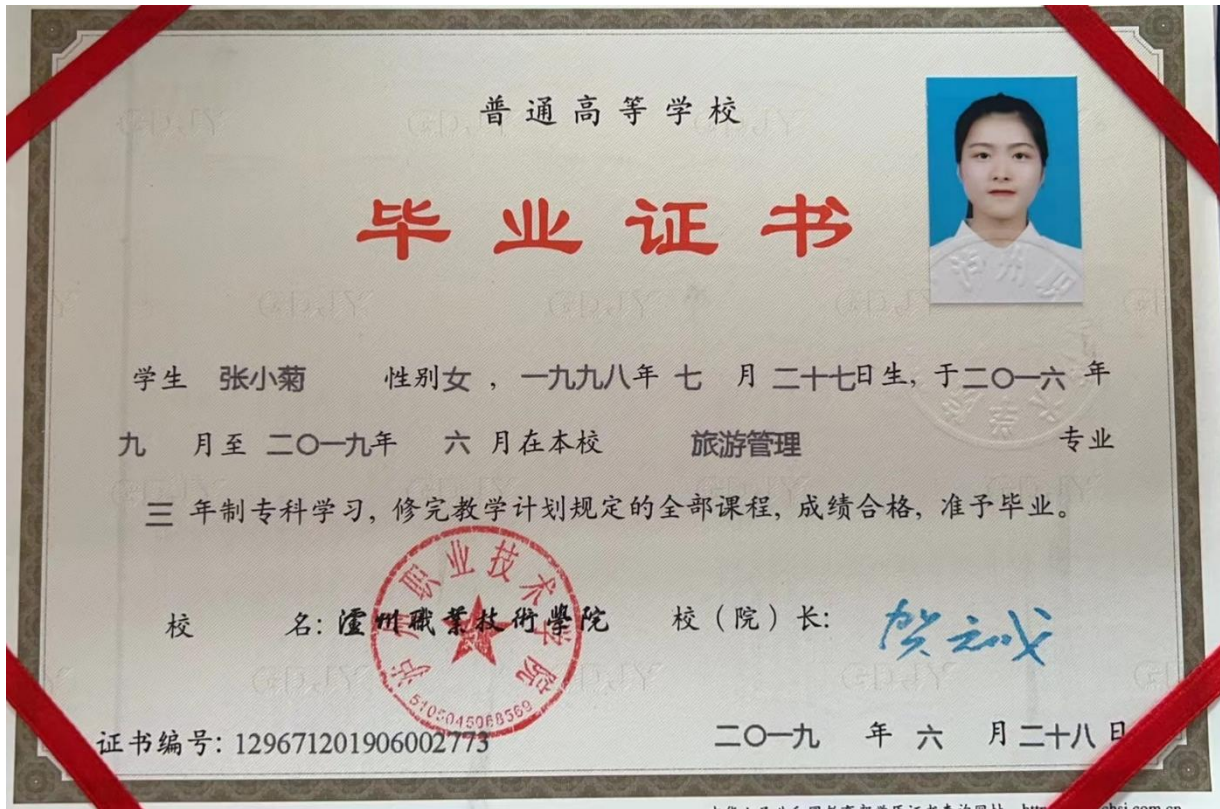 普通高等学校
毕业证书
学生 张小菊 性别女，一九九八年 七 月 二十七日生，于二〇一六 年
九 月至 二〇一九年 六 月在本校 旅游管理 专业
三 年制专科学习，修完教学计划规定的全部课程，成绩合格，准予毕业。
校 名：瀘州職業技術學院 校（院）长：贺元成
泸州职业技术学院
证书编号：129671201906002773
二〇一九 年 六 月 二十八 日
泸州职